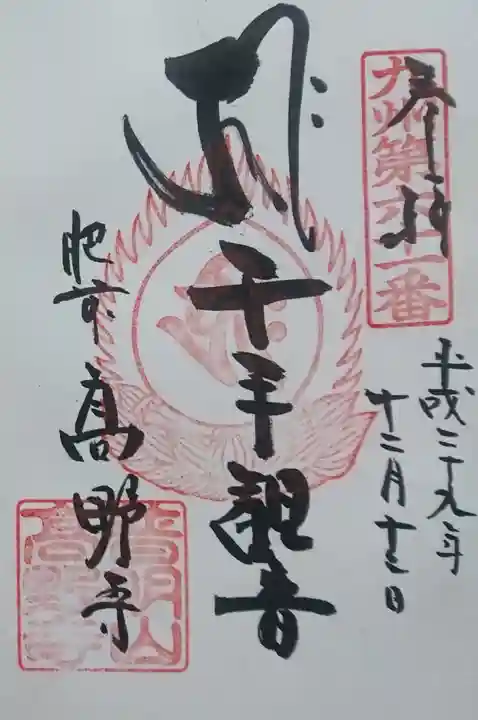 奉拝
九州第六十一番
平成二十九年
十二月十日
千手観音
肥前 高野寺
青明山
高野寺